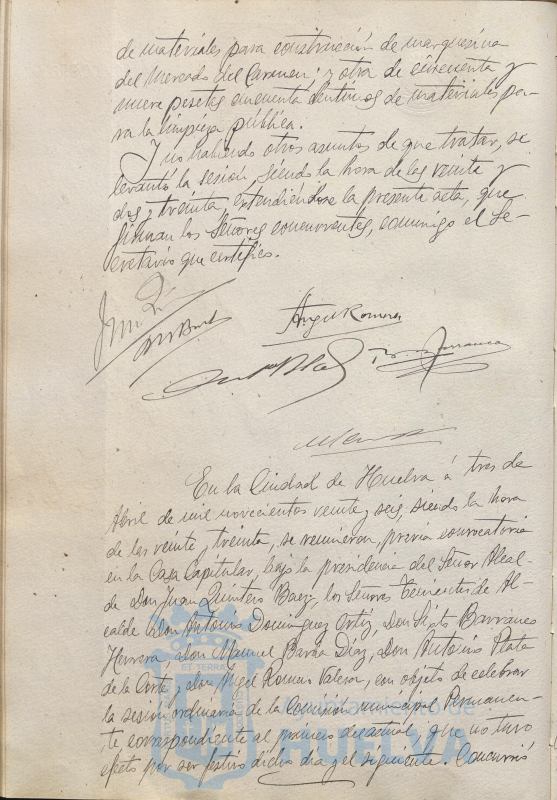 de materiales para construcción de marquesina
del Mercado del Carmen; y otra de cincuenta y
nueve pesetas cincuenta céntimos de materiales pa-
ra la limpieza pública.
Y no habiendo otros asuntos de que tratar, se
levantó la sesión, siendo la hora de las veinte y
dos y treinta, extendiéndose la presente acta, que
firman los Señores concurrentes, conmigo el Se-
cretario que certifico.
Angel Romero
Barranco
En la Ciudad de Huelva á tres de
Abril de mil novecientos veinte y seis, siendo la hora
de las veinte y treinta, se reunieron, previa convocatoria
en la Casa Capitular, bajo la presidencia del Señor Alcal-
de Don Juan Quintero Baez, los Señores Tenientes de Al-
calde Don Antonio Domínguez Ortiz, Don Sixto Barranco
Herrera, don Manuel Barba Díaz, Don Antonio Plata
de la Corte y don Angel Romero Valera, con objeto de celebrar
la sesión ordinaria de la Comisión municipal Permanen-
te, correspondiente al primero de actual, que no tuvo
efecto por ser festivo dicho día y el siguiente. Concurrió
Ayuntamiento de
HUELVA